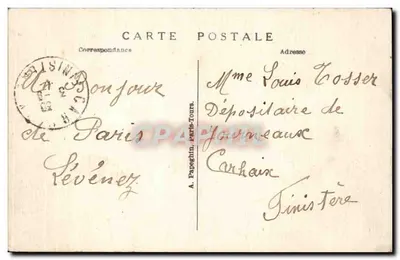 CARTE POSTALE
Correspondance
Adresse
Un Bonjour
de Paris
Lévénez
A. Papeghin, Paris-Tours.
Mme Louis Tosser
Dépositaire de
Journeaux
Carhaix
Finistère